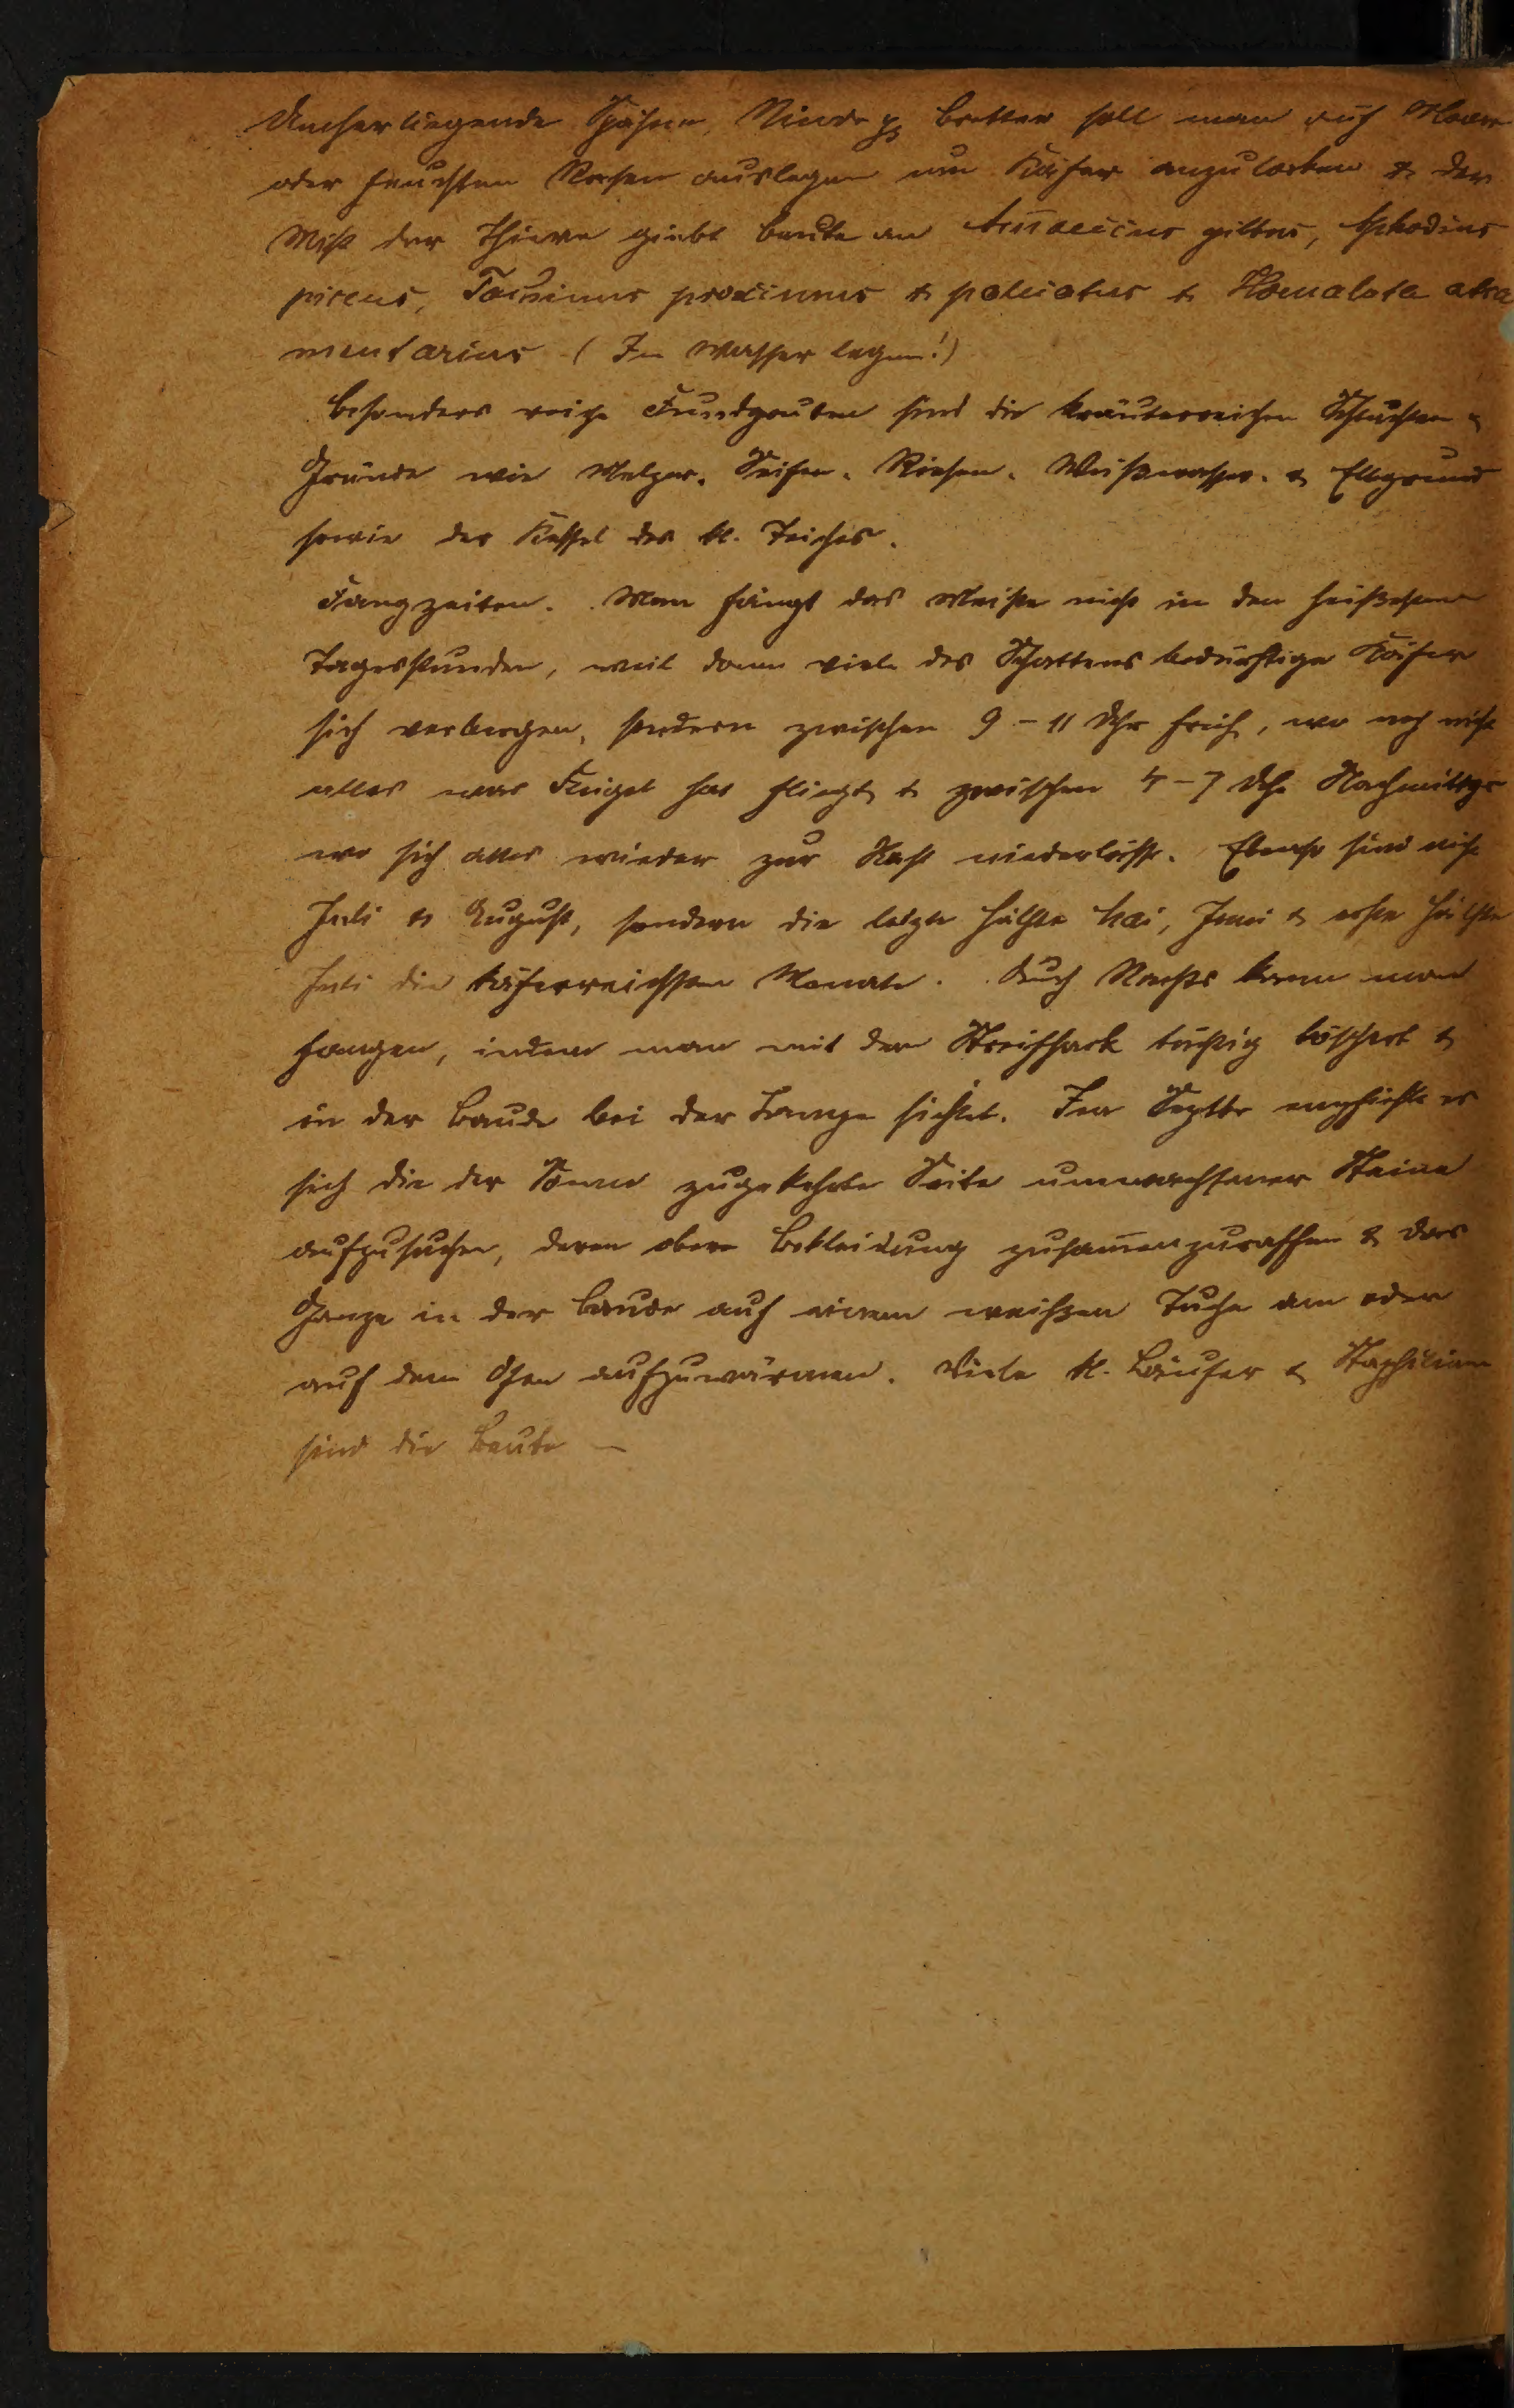 Umherliegende Spähne, Rinde & Bretter soll man auf Moore
oder feuchten Rasen auslegen um Käfer anzulocken & der
Mist der Thiere giebt Beute an Ammoecius gibbus, Aphodius
piceus, Tachinus proximus & palliatus & Homalota atra
mentarius (In Wasser legen!)
Besonders reiche Fundgruben sind die kräuterreichen Schluchten &
Gründe wie Melzer- Seifen- Riesen- Weißwasser- & Elbgrund
sowie der Kessel des kl. Teiches.
Fangzeiten. Man fängt das Meiste nicht in den heißesten
Tagesstunden, weil dann viele des Schattens bedürftige Käfer
sich verbergen, sondern zwischen 9-11 Uhr früh, wo noch nicht
alles was Flügel hat fliegt, & zwischen 4-7 Uhr Nachmittgs
wo sich alles wieder zur Rast niederlässt. Ebenso sind nicht
Juli & August, sondern die letzte Hälfte Mai, Juni & erste Hälfte
Juli die käferreichsten Monate. Auch Nachts kann man
fangen, indem man mit dem Streifsack tüchtig & 
in der Baude bei der Lampe sichtet. Im Septbr empfiehlt es
sich die der Sonne zugekehrte Seite umwachsener Steine
aufzusuchen, deren obere Bekleidung zusam̄enzuraffen & das
Ganze in der Baude auf einem weißen Tuche am oder
auf dem Ofen aufzuwärmen. Viele kl. Läufer & Staphilinen
sind die Beute —